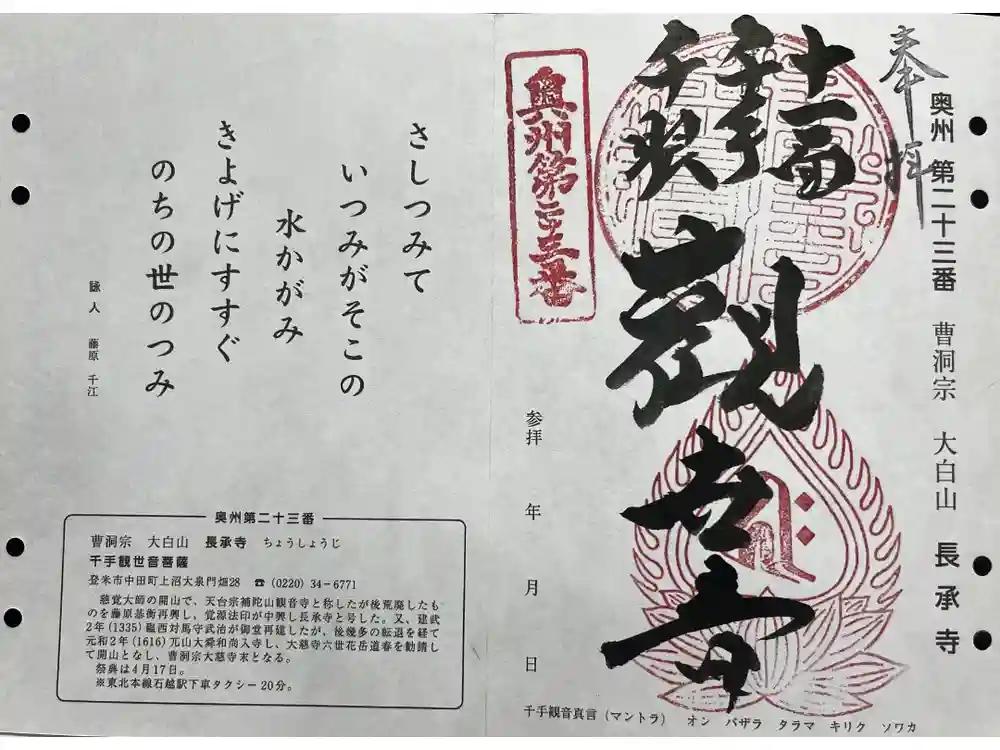 奉拝
奥州 第二十三番 曹洞宗 大白山 長承寺
十一面
千手
千眼
観世音
奥州第二十三番
参拝 年 月 日
千手観音真言(マントラ) オン バザラ タラマ キリク ソワカ
さしつみて
いつみがそこの
水かがみ
きよげにすすぐ
のちの世のつみ
詠人 藤原 千江
奥州第二十三番
曹洞宗 大白山 長承寺 ちょうしょうじ
千手観世音菩薩
登米市中田町上沼大泉門畑28 ☎(0220)34-6771
慈覚大師の開山で、天台宗補陀山観音寺と称したが後荒廃したも
のを藤原基衡再興し、覚源法印が中興し長承寺と号した。又、建武
2年(1335)臨西対馬守武治が御堂再建したが、後幾多の転退を経て
元和2年(1616)兀山大舜和尚入寺し、大慈寺六世花岳道春を勧請し
て開山となし、曹洞宗大慈寺末となる。
祭典は4月17日。
※東北本線石越駅下車タクシー20分。